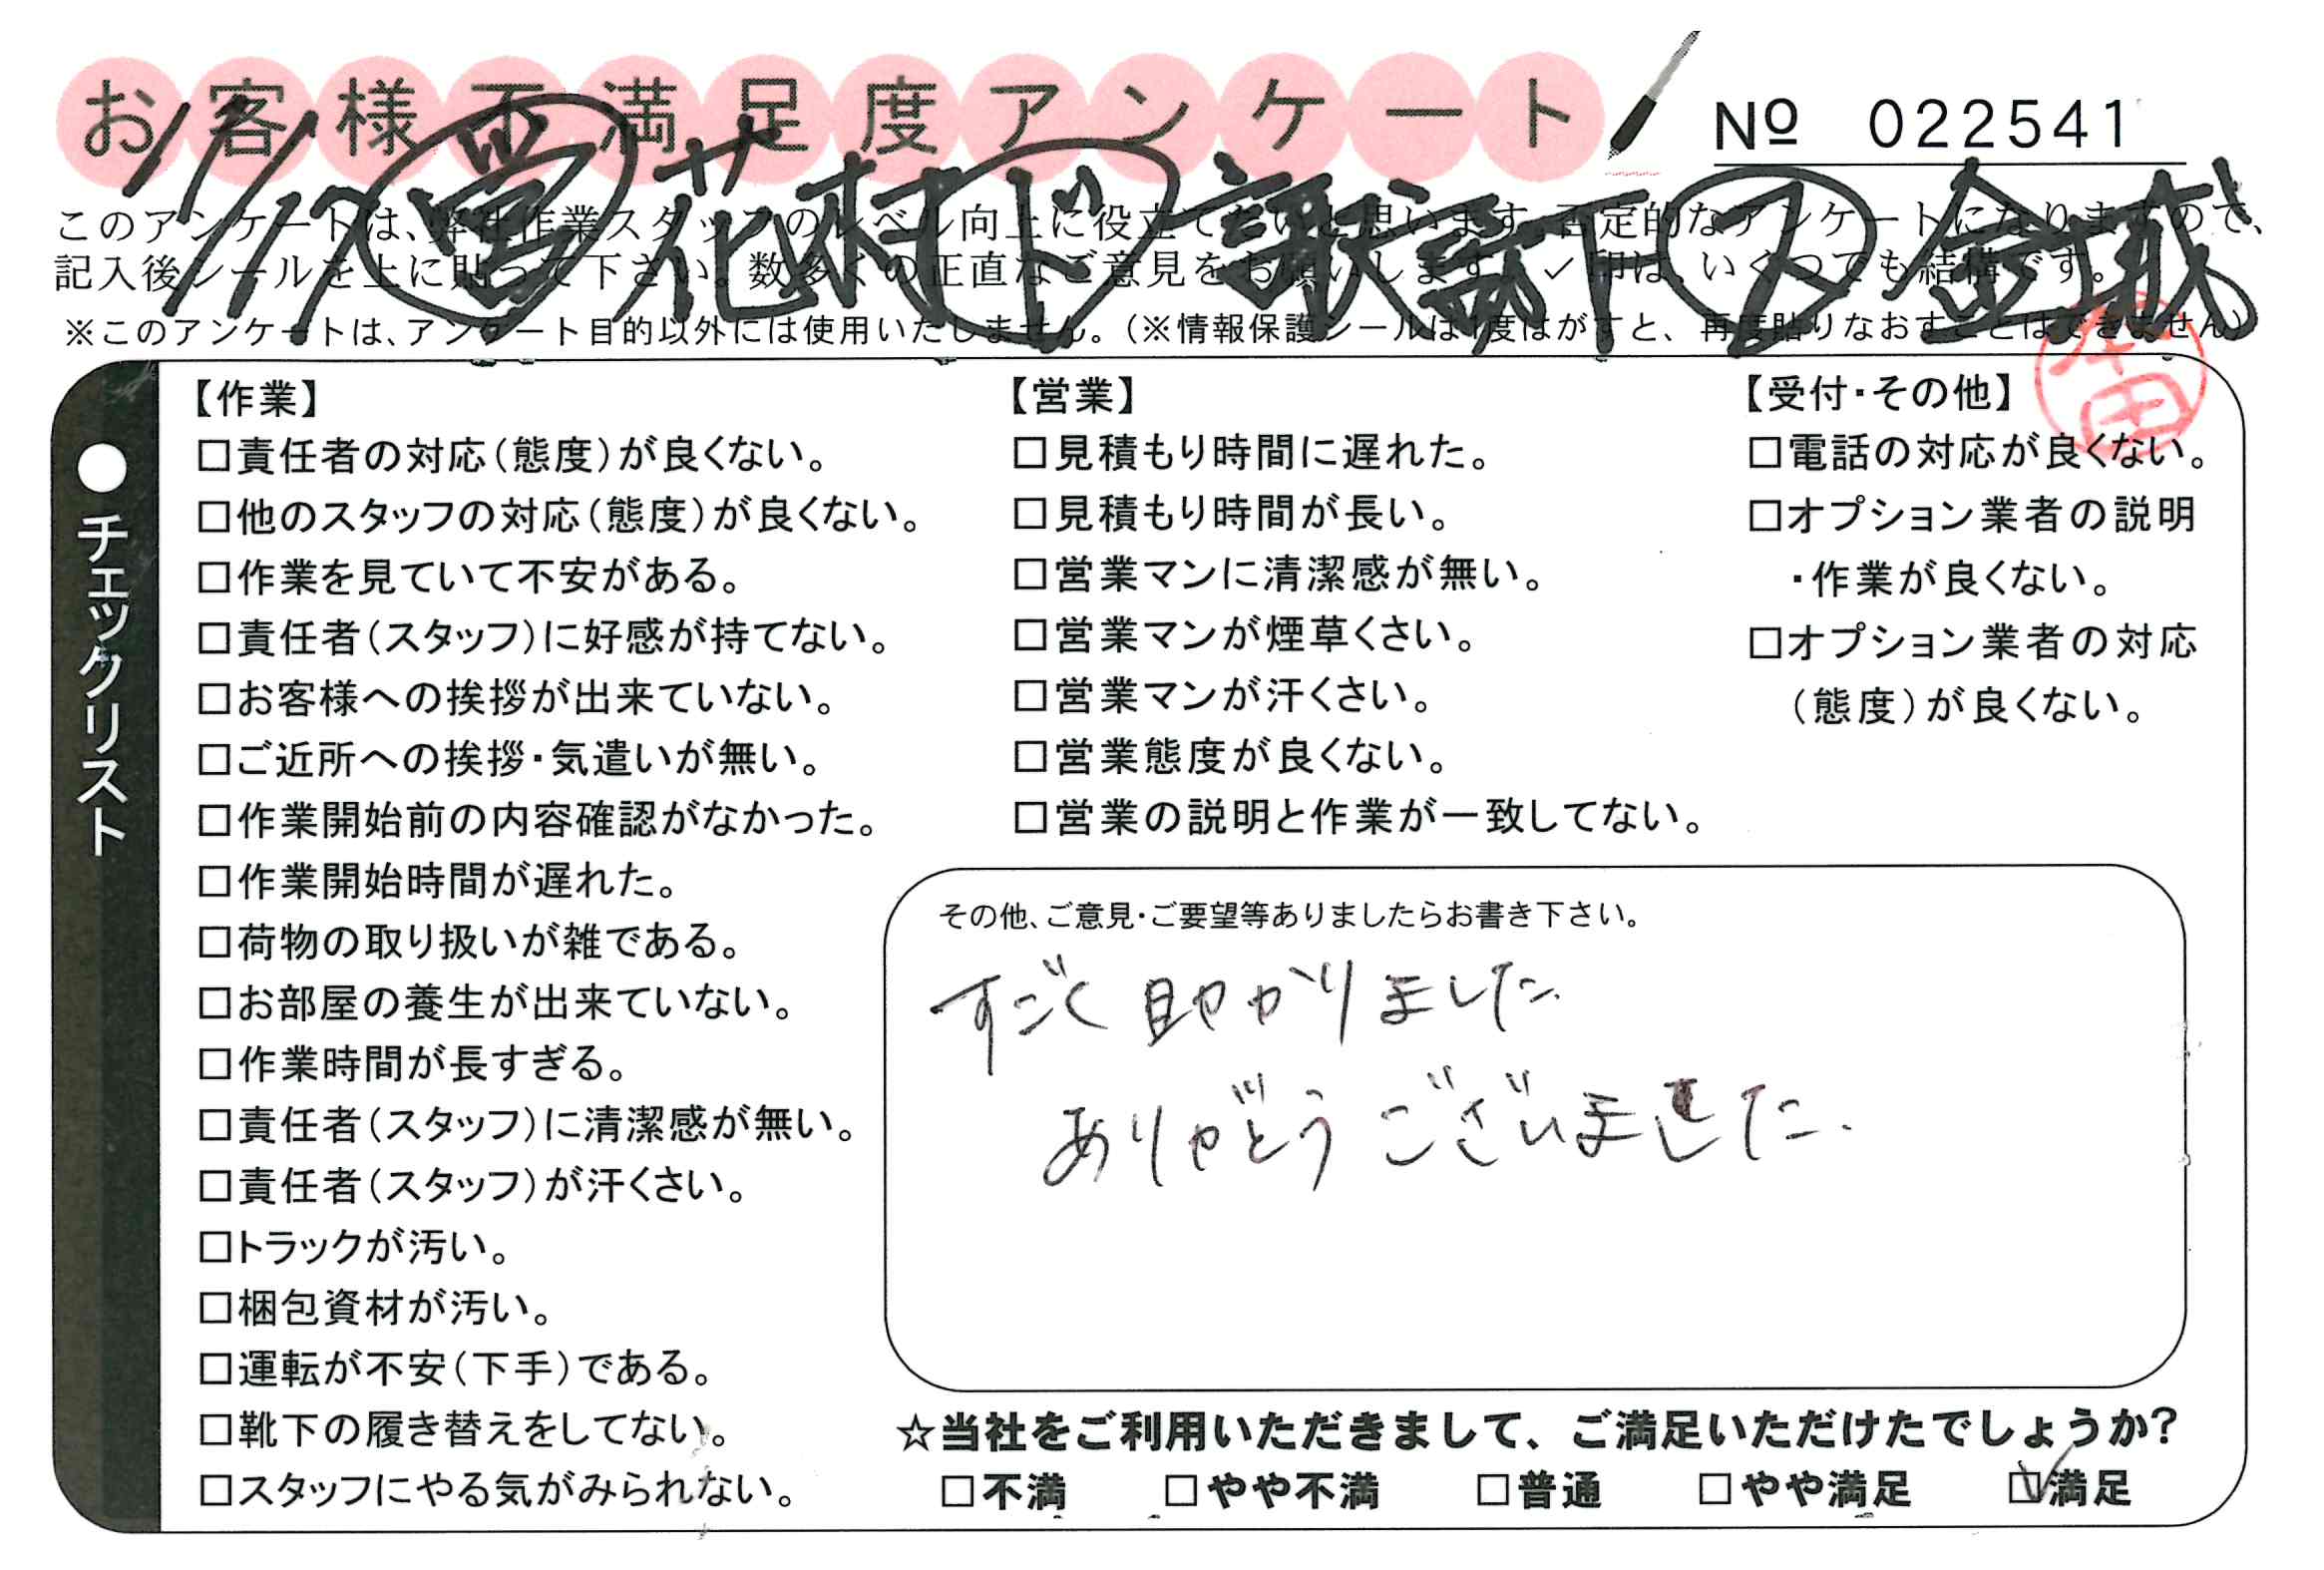 お客様不満足度アンケート
№ 022541
11/17 営 花村 ド 諏訪下 ス 金城
このアンケートは、弊社作業スタッフのレベル向上に役立てたいと思います。否定的なアンケートになりますので、
記入後シールを上に貼って下さい。数多くの正直なご意見をお願いします。✓印は、いくつでも結構です。
※このアンケートは、アンケート目的以外には使用いたしません。(※情報保護シールは1度はがすと、再度貼りなおすことはできません)
●チェックリスト
【作業】
□責任者の対応(態度)が良くない。
□他のスタッフの対応(態度)が良くない。
□作業を見ていて不安がある。
□責任者(スタッフ)に好感が持てない。
□お客様への挨拶が出来ていない。
□ご近所への挨拶・気遣いが無い。
□作業開始前の内容確認がなかった。
□作業開始時間が遅れた。
□荷物の取り扱いが雑である。
□お部屋の養生が出来ていない。
□作業時間が長すぎる。
□責任者(スタッフ)に清潔感が無い。
□責任者(スタッフ)が汗くさい。
□トラックが汚い。
□梱包資材が汚い。
□運転が不安(下手)である。
□靴下の履き替えをしてない。
□スタッフにやる気がみられない。
【営業】
□見積もり時間に遅れた。
□見積もり時間が長い。
□営業マンに清潔感が無い。
□営業マンが煙草くさい。
□営業マンが汗くさい。
□営業態度が良くない。
□営業の説明と作業が一致してない。
【受付・その他】
□電話の対応が良くない。
□オプション業者の説明
・作業が良くない。
□オプション業者の対応
(態度)が良くない。
その他、ご意見・ご要望等ありましたらお書き下さい。
すごく助かりました
ありがとうございました.
☆当社をご利用いただきまして、ご満足いただけたでしょうか?
□不満 □やや不満 □普通 □やや満足 ☑満足